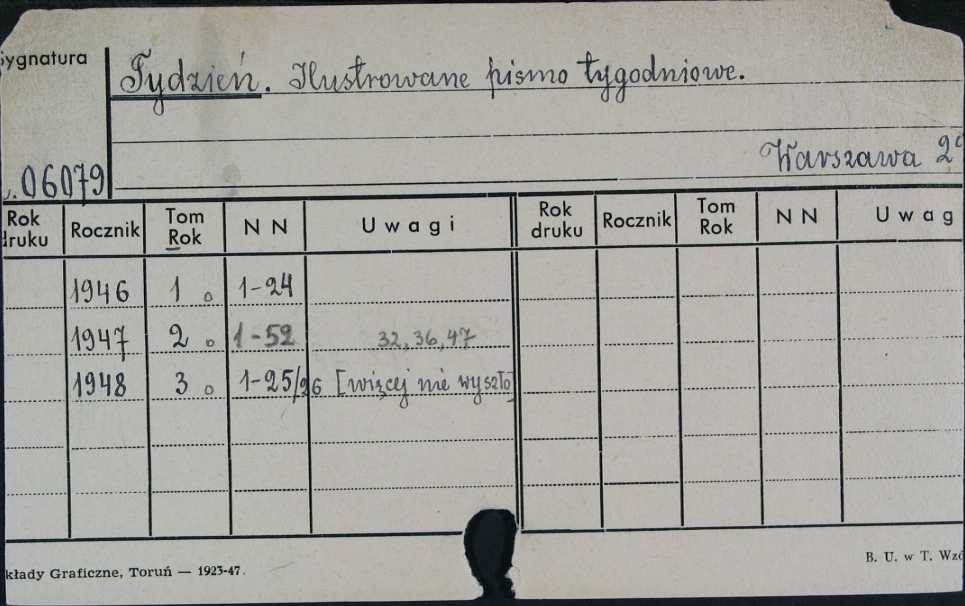 Sygnatura
Tydzień. Ilustrowane pismo tygodniowe.
Warszawa
06079
Rok druku Rocznik Tom Rok N N Uwagi Rok druku Rocznik Tom Rok N N Uwag
1946 1 o 1-24
1947 2 o 1-52 32, 36, 47
1948 3 o 1-25/26 [więcej nie wyszło]
kłady Graficzne, Toruń — 1923-47.
B. U. w T.